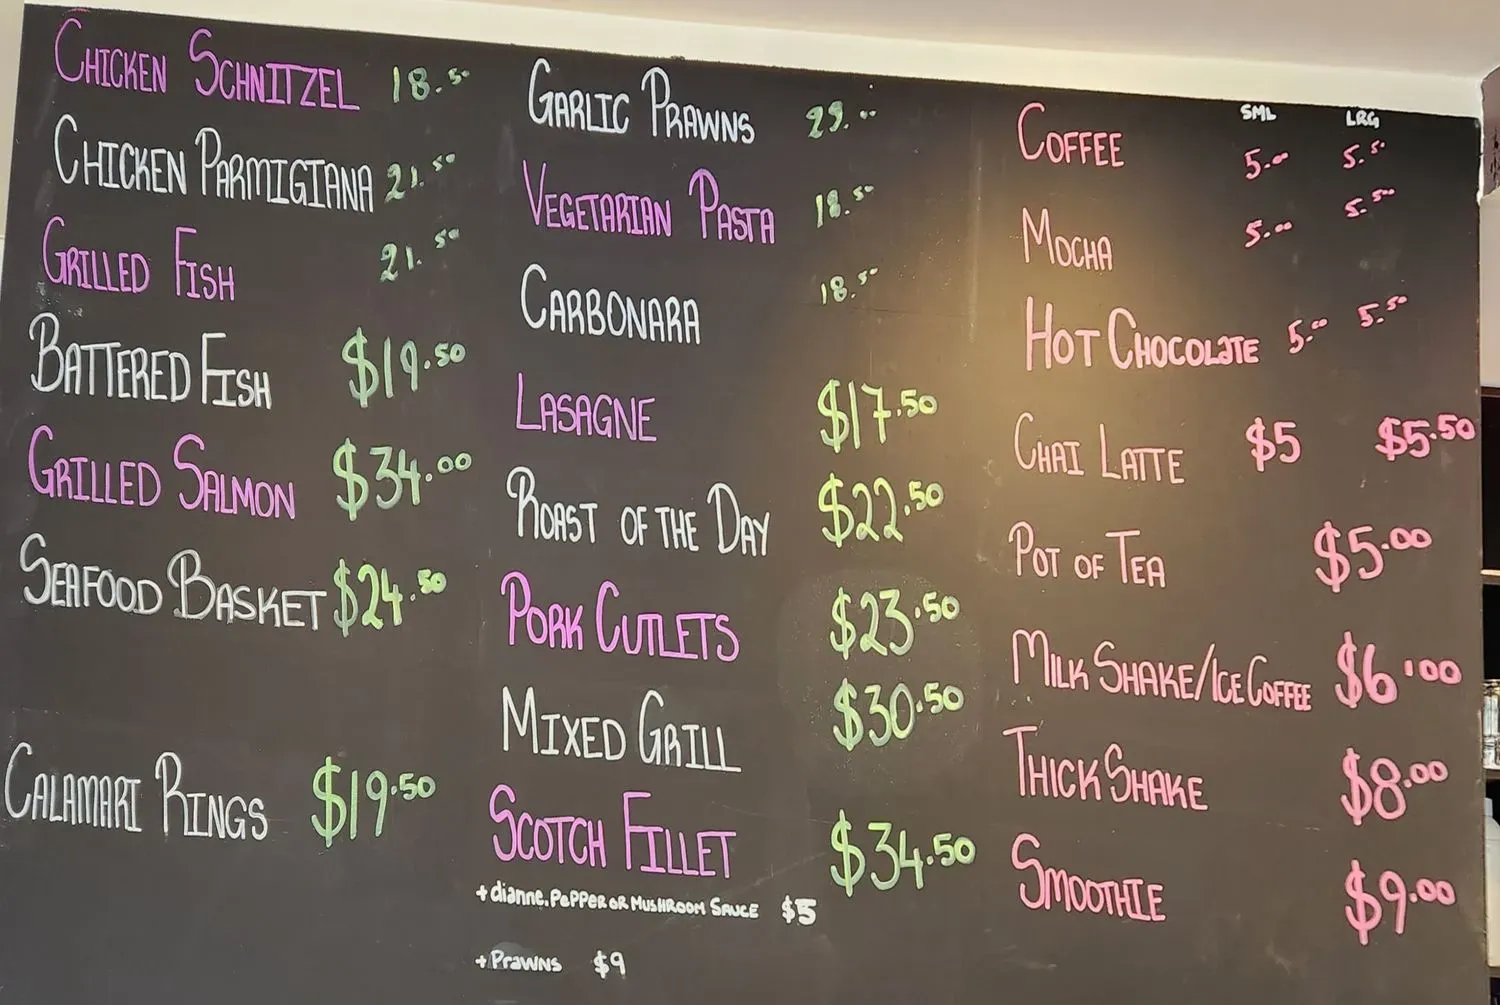 CHICKEN SCHNITZEL 18.50
CHICKEN PARMIGIANA 21.50
GRILLED FISH 21.50
BATTERED FISH $19.50
GRILLED SALMON $34.00
SEAFOOD BASKET $24.50
CALAMARI RINGS $19.50
GARLIC PRAWNS 29.00
VEGETARIAN PASTA 18.50
CARBONARA 18.50
LASAGNE $17.50
ROAST OF THE DAY $22.50
PORK CUTLETS $23.50
MIXED GRILL $30.50
SCOTCH FILLET $34.50
+ dianne, PEPPER OR MUSHROOM SAUCE $5
+ PRAWNS $9
SML LRG
COFFEE 5.00 5.50
MOCHA 5.00 5.50
HOT CHOCOLATE 5.00 5.50
CHAI LATTE $5 $5.50
POT OF TEA $5.00
MILK SHAKE/ICE COFFEE $6.00
THICK SHAKE $8.00
SMOOTHIE $9.00